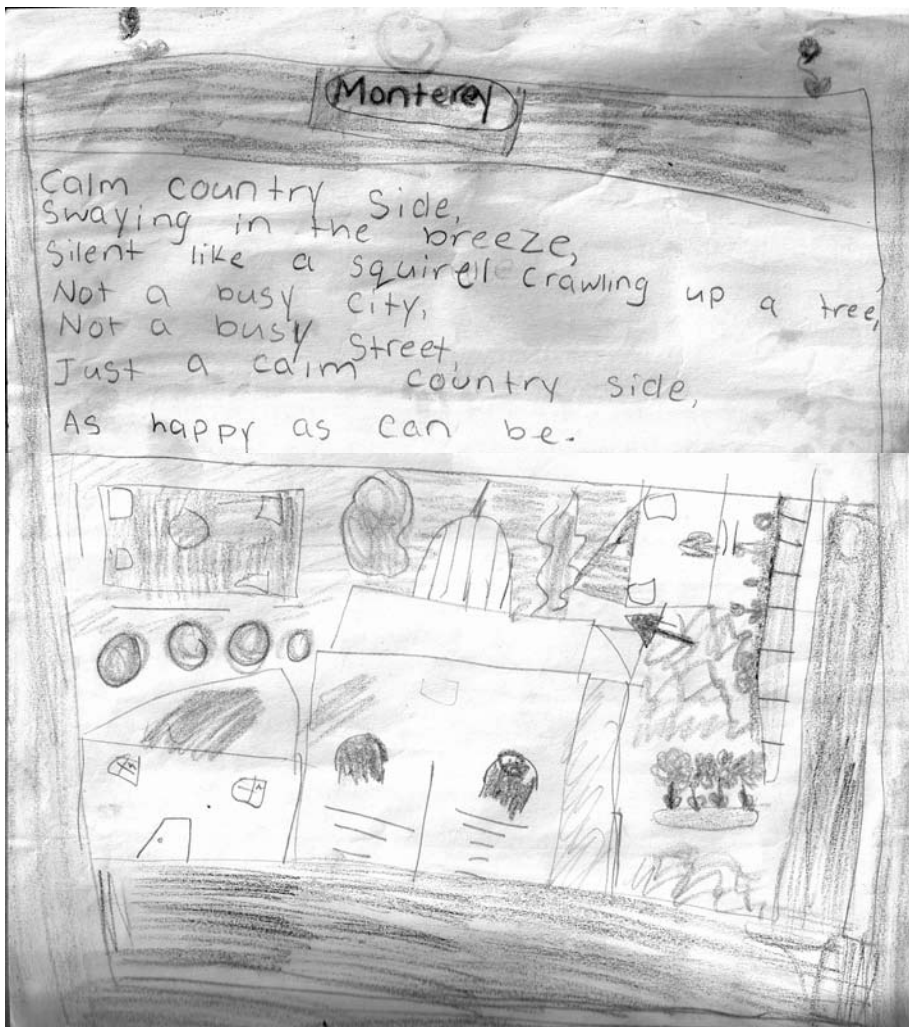 Monterey
Calm country side,
Swaying in the breeze,
Silent like a squirell crawling up a tree,
Not a busy city,
Not a busy street,
Just a calm country side,
As happy as can be.